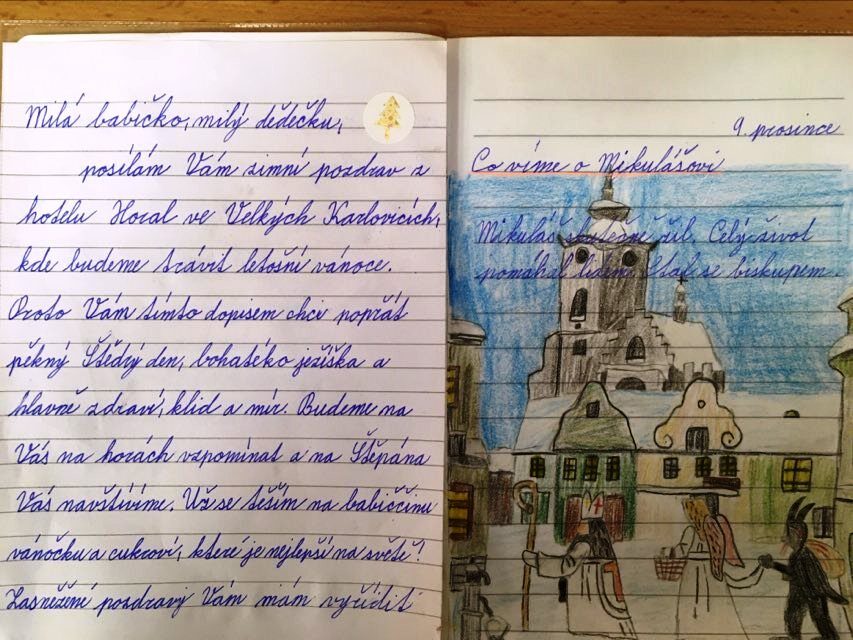 Milá babičko, milý dědečku,
posílám Vám zimní pozdrav z
hotelu Horal ve Velkých Karlovicích,
kde budeme trávit letošní vánoce.
Proto Vám tímto dopisem chci popřát
pěkný Štědrý den, bohatého ježíška a
hlavně zdraví, klid a mír. Budeme na
Vás na horách vzpomínat a na Štěpána
Vás navštívíme. Už se těším na babiččinu
vánočku a cukroví, které je nejlepší na světě!
Zasněžené pozdravy Vám mám vyřídit
9. prosince
Co víme o Mikulášovi
Mikuláš skutečně žil. Celý život
pomáhal lidem. Stal se biskupem.